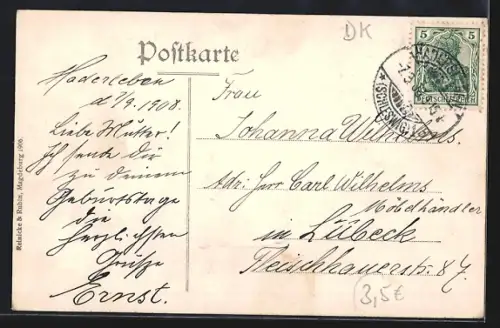 DK
5 5
DEUTSCHES REICH
Postkarte
(SCHLESWIG)
Hadersleben
d 7/9. 1908.
Liebe Mutter!
Ich sende Dir
zu deinem
Geburtstage
die
herzlichsten
Grüße
Ernst.
Frau
Johanna Wilhelms.
Adr. Herr Carl Wilhelms
Möbelhändler
in Lübeck
Fleischhauerstr. 87.
3,5€
Reinicke & Rubin, Magdeburg 1906.